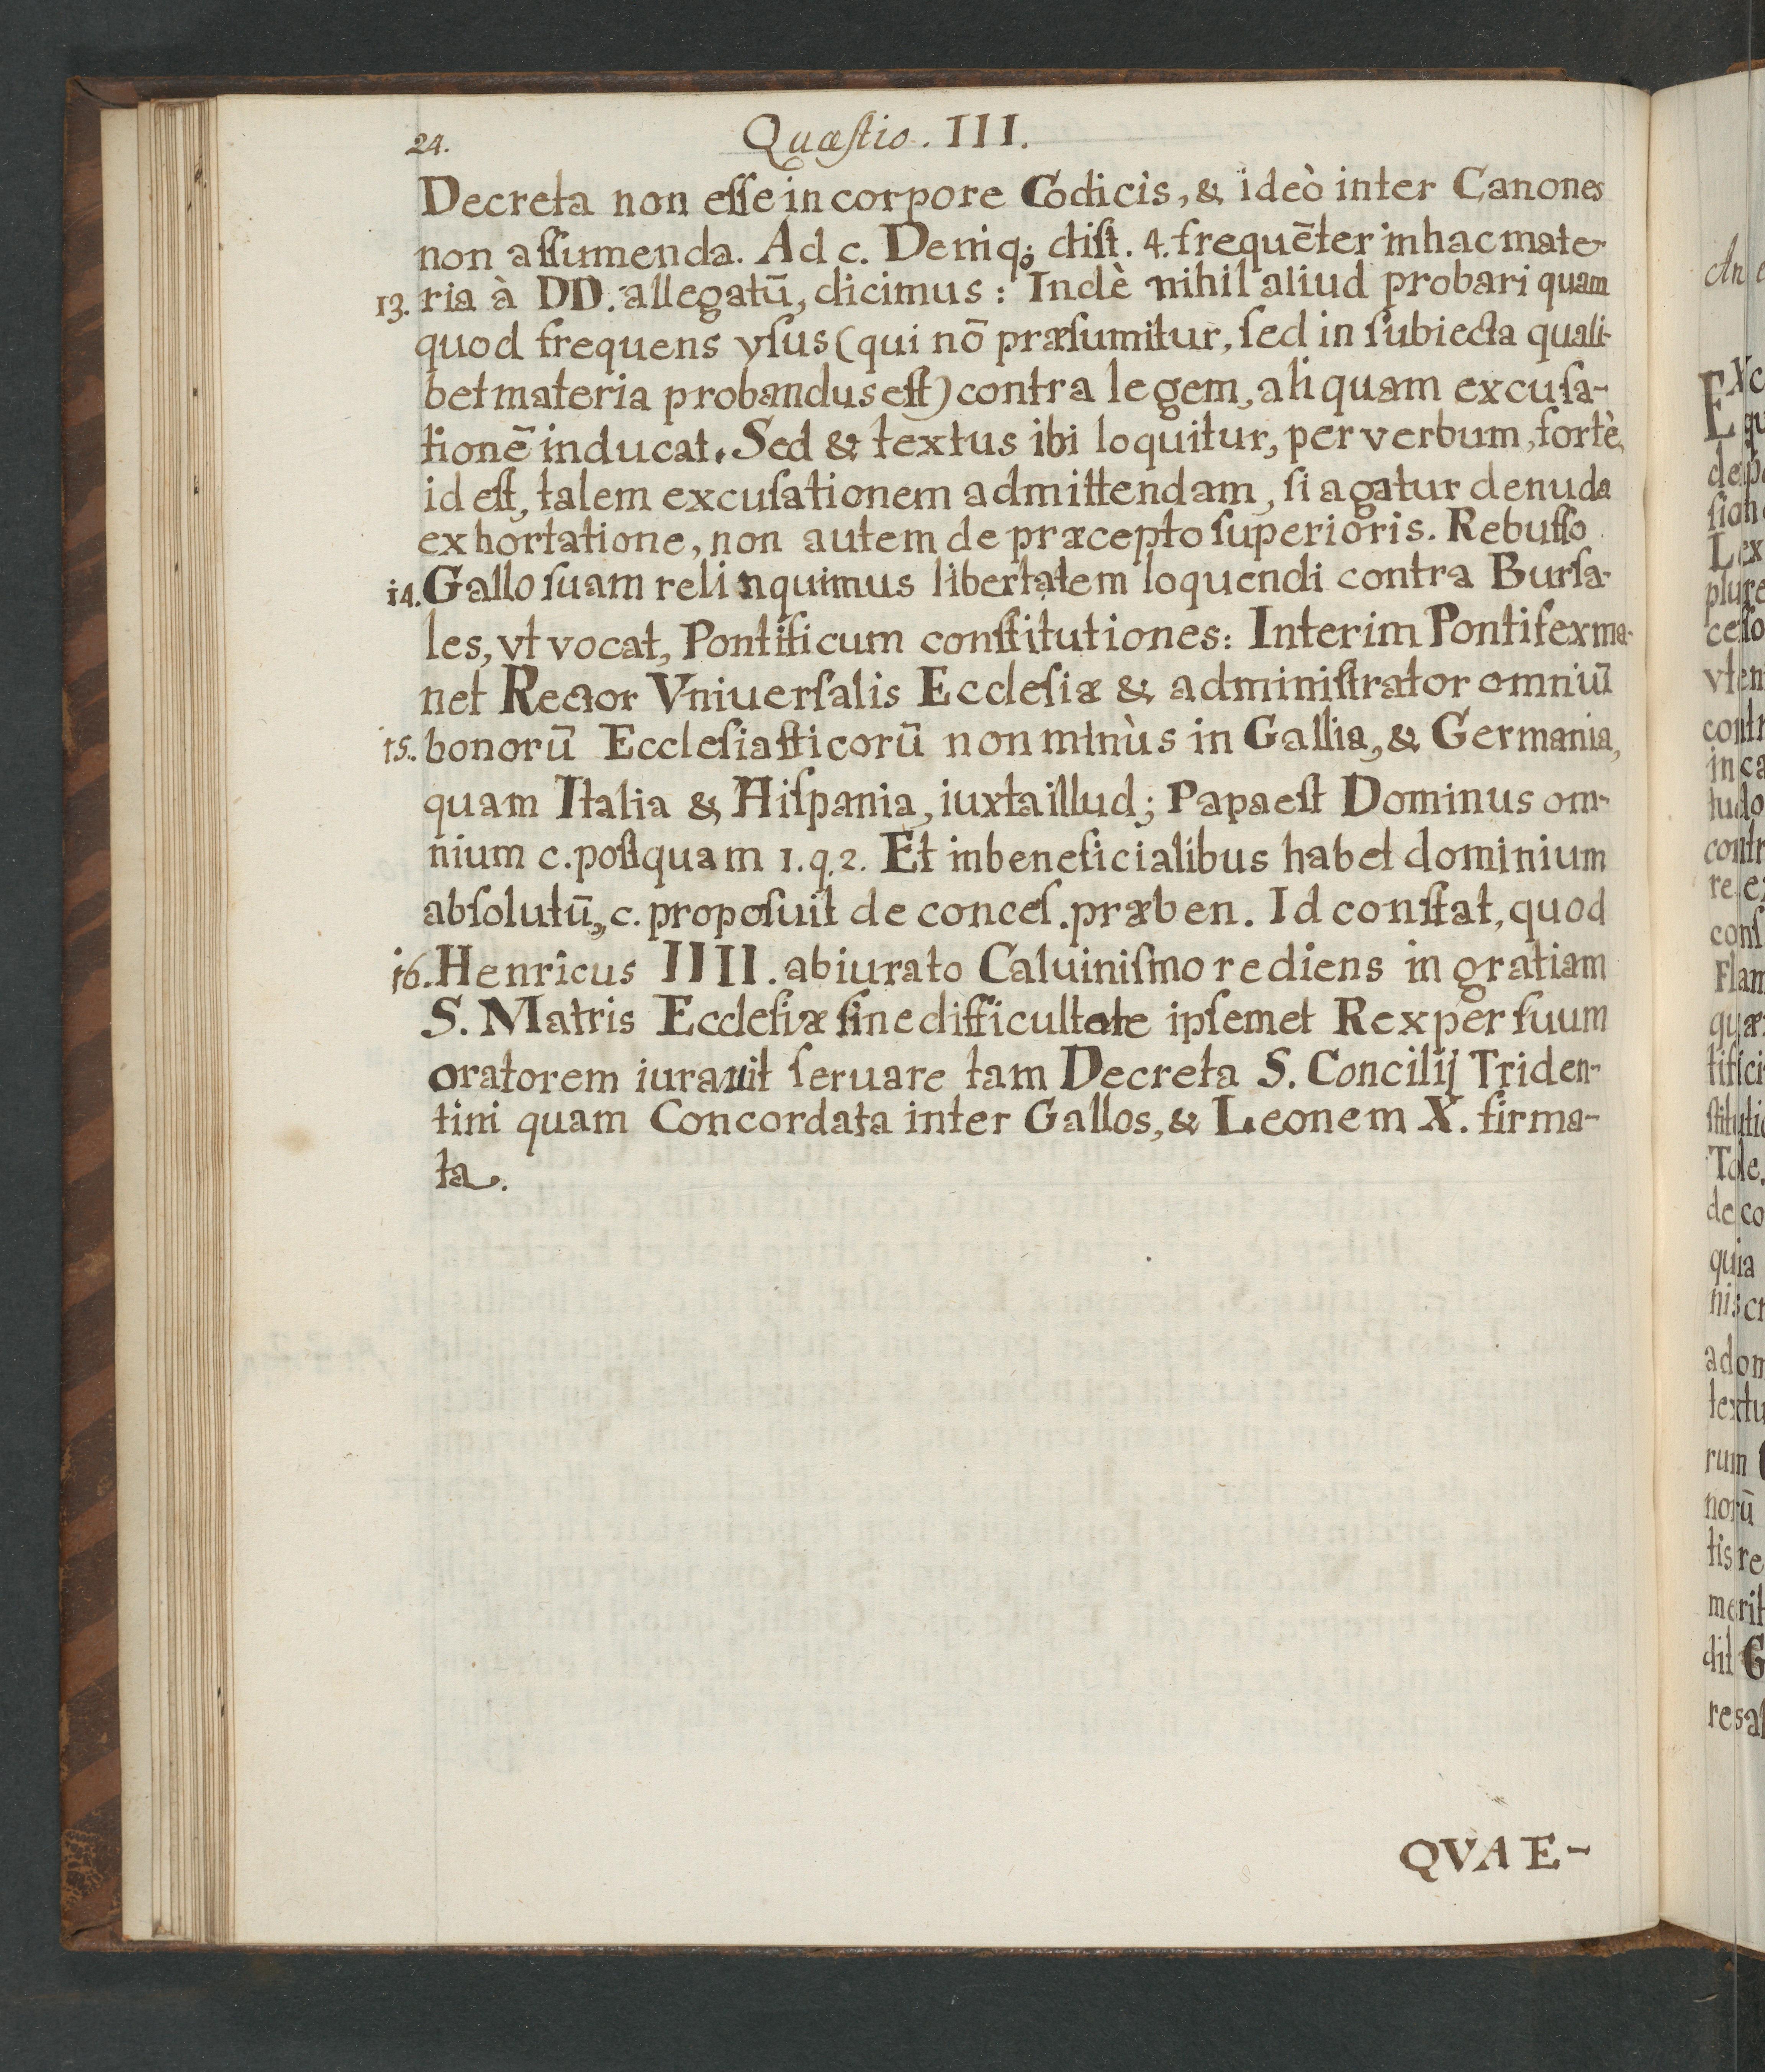 24.
Quæſtio. III.
Decreta non eſſe in corpore Codicis, & ideò inter Canones
non aſſumenda. Ad c. Deniq; diſt. 4. frequēter in hac mate-
13. ria à DD. allegatū, dicimus: Indè nihil aliud probari quam
quod frequens vſus (qui nō præſumitur, ſed in ſubiecta quali-
bet materia probandus eſt) contra legem, aliquam excuſa-
tionē inducat. Sed & textus ibi loquitur, per verbum, fortè,
id eſt, talem excuſationem admittendam, ſi agatur de nuda
exhortatione, non autem de præcepto ſuperioris. Rebuffo
14. Gallo ſuam relinquimus libertatem loquendi contra Burſa-
les, vt vocat, Pontificum conſtitutiones: Interim Pontifex ma-
net Rector Vniuerſalis Eccleſiæ & adminiſtrator omniū
15. bonorū Eccleſiaſticorū non minùs in Gallia, & Germania,
quam Italia & Hiſpania, iuxta illud; Papa eſt Dominus om-
nium c. poſtquam 1. q. 2. Et in beneficialibus habet dominium
abſolutū, c. propoſuit de conceſ. præben. Id conſtat, quod
16. Henricus IIII. abiurato Caluiniſmo rediens in gratiam
S. Matris Eccleſiæ ſine difficultate ipſemet Rex per ſuum
oratorem iurauit ſeruare tam Decreta S. Concilij Triden-
tini quam Concordata inter Gallos, & Leonem X. firma-
ta.
QVAE-